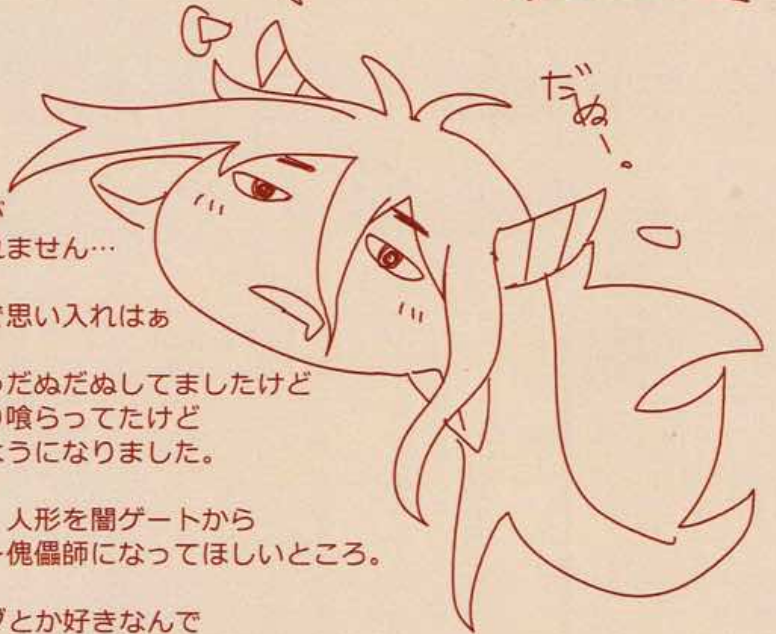 だぬー。
れません…
思い入れはぁ
だぬだぬしてましたけど
喰らってたけど
ようになりました。
人形を闇ゲートから
傀儡師になってほしいところ。
とか好きなんで